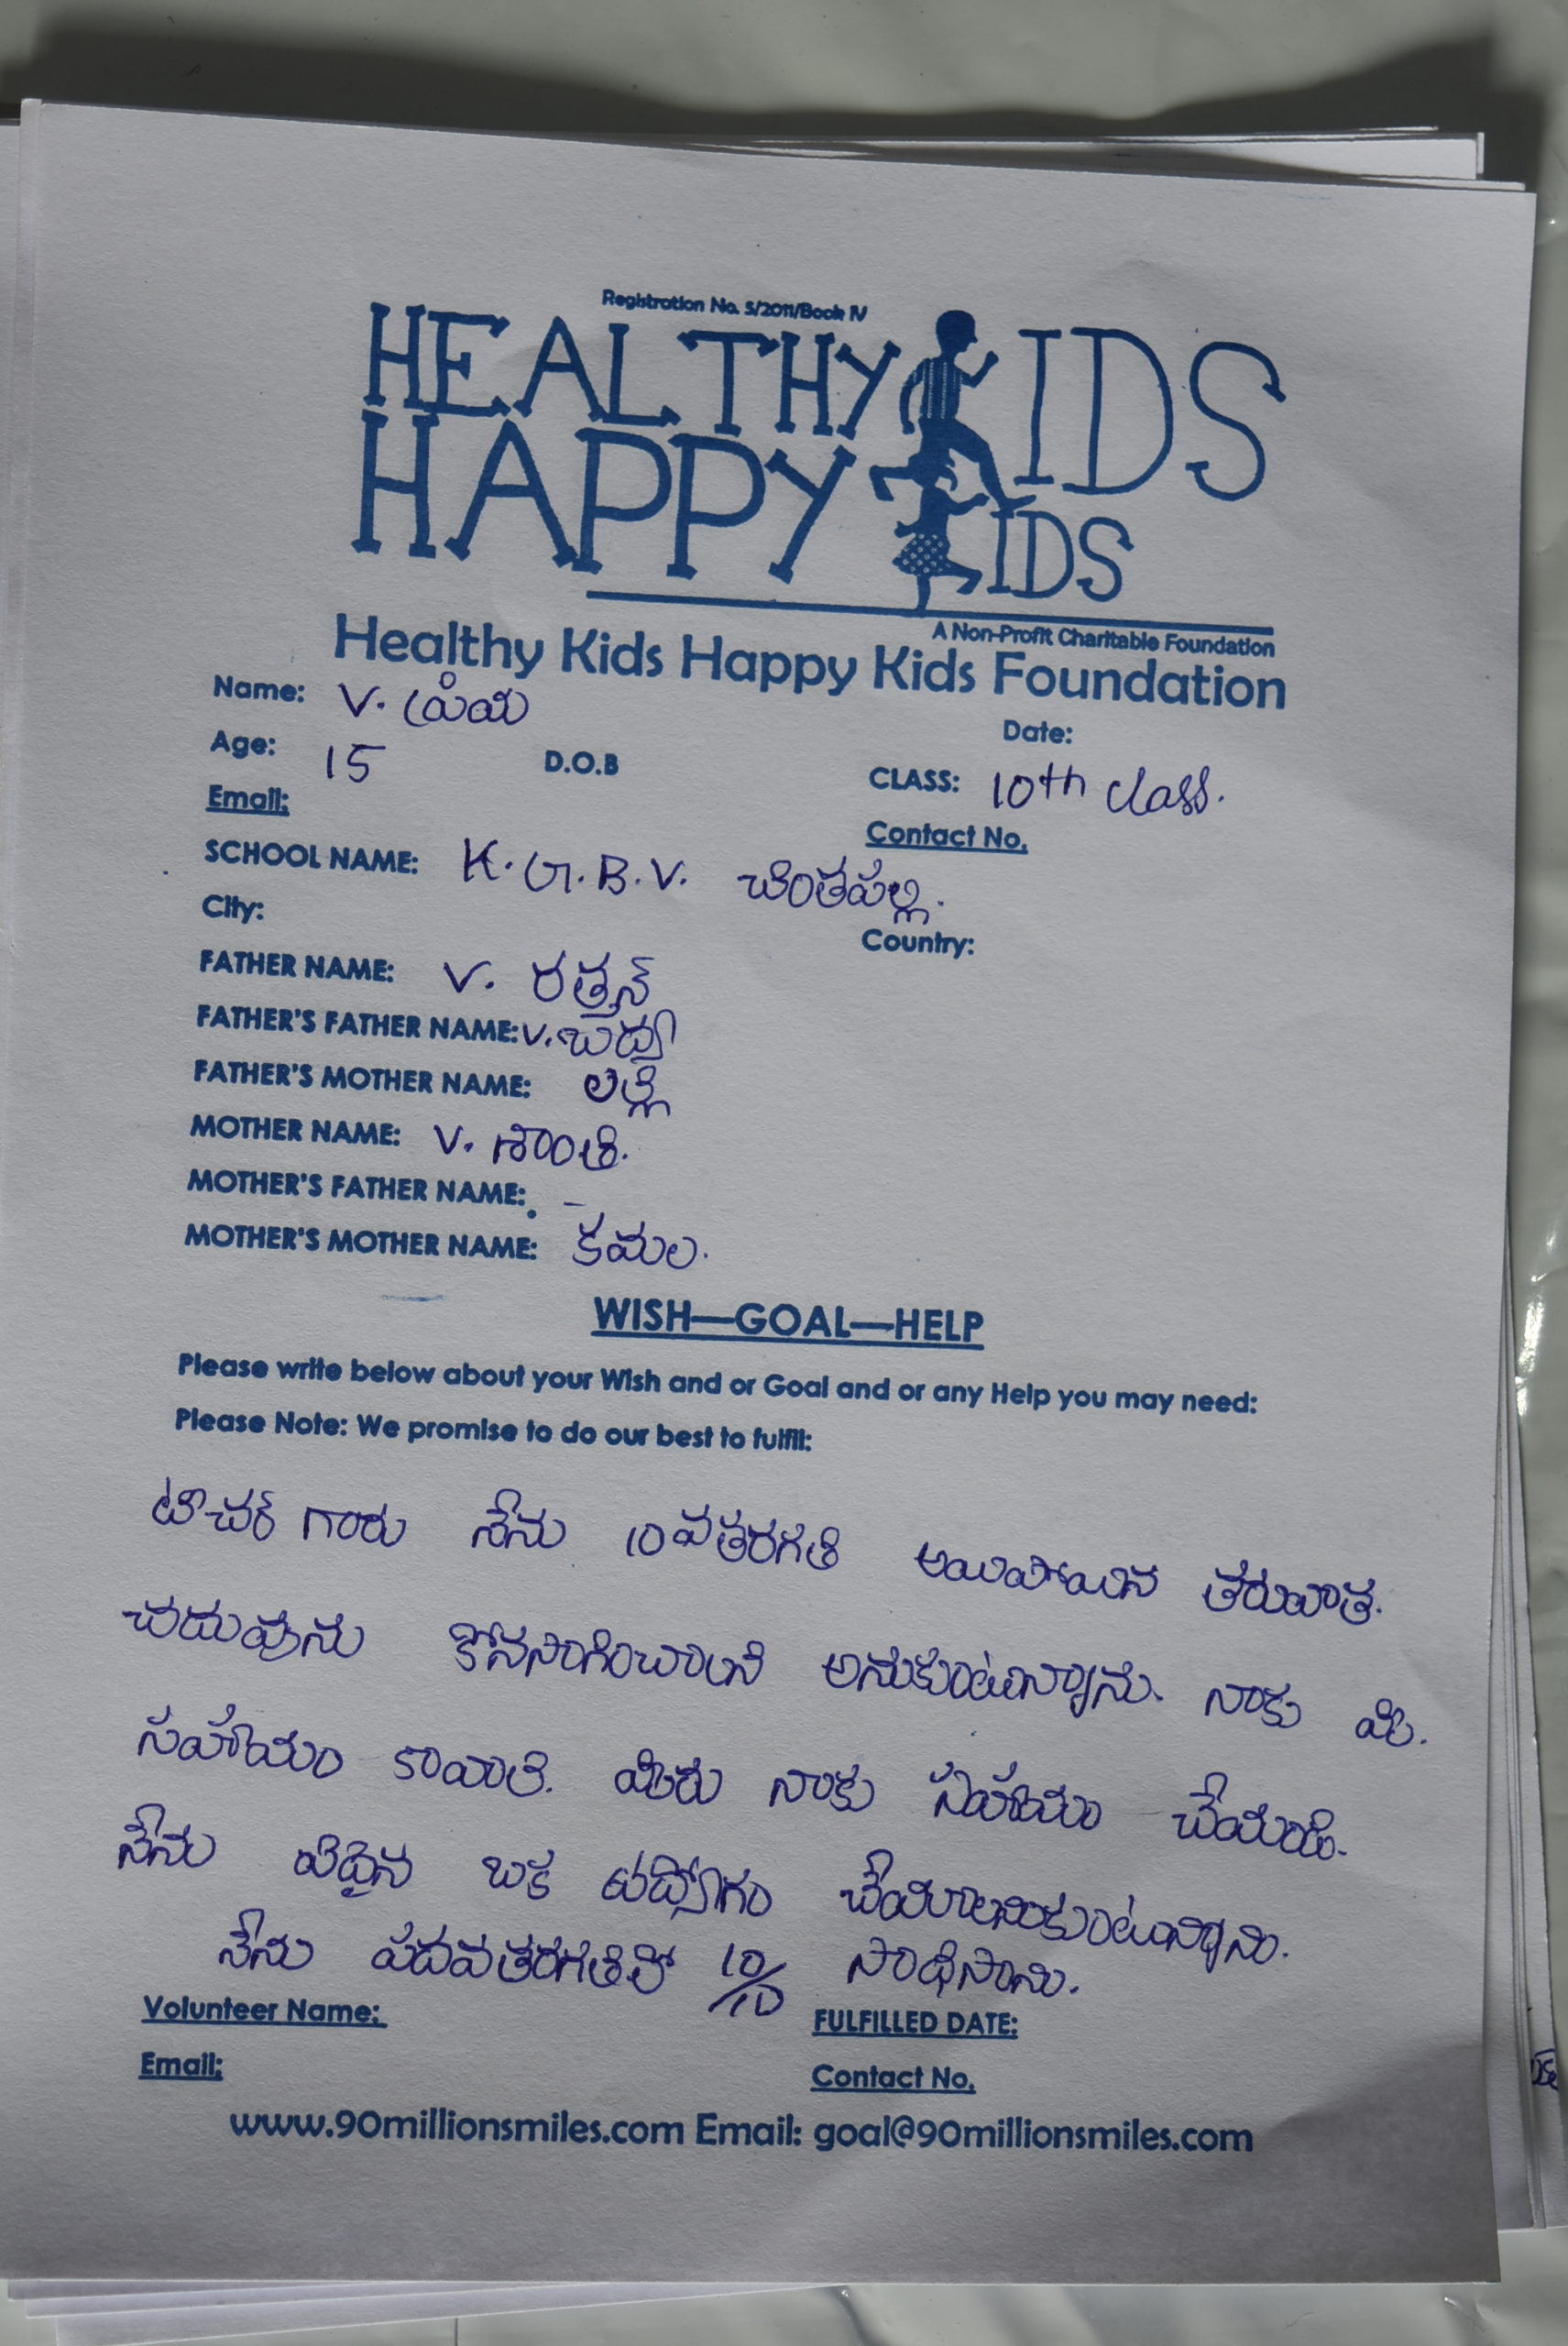 Registration No. 5/2011/Book IV
HEALTHY KIDS
HAPPY KIDS
A Non-Profit Charitable Foundation
Healthy Kids Happy Kids Foundation
Name: V. ప్రియ
Date:
Age: 15 D.O.B CLASS: 10th class.
Email: Contact No.
SCHOOL NAME: K.G.B.V. చింతపల్లి.
City: Country:
FATHER NAME: V. రత్తన్
FATHER'S FATHER NAME: V.
FATHER'S MOTHER NAME:
MOTHER NAME: V. శాంతి.
MOTHER'S FATHER NAME: -
MOTHER'S MOTHER NAME: కమల.
WISH—GOAL—HELP
Please write below about your Wish and or Goal and or any Help you may need:
Please Note: We promise to do our best to fulfil:
టీచర్ గారు నేను 10వతరగతి అయిపోయిన తరువాత.
చదువును కోనసాగించాలని అనుకుంటున్నాను. నాకు మీ.
సహాయం కావాలి. మీరు నాకు సహాయం చేయండి.
నేను ఏదైన ఒక ఉద్యోగం చేయాలనుకుంటున్నాను.
నేను పదవతరగతిలో 10/10 సాధిసాను.
Volunteer Name: FULFILLED DATE:
Email: Contact No.
www.90millionsmiles.com Email: goal@90millionsmiles.com